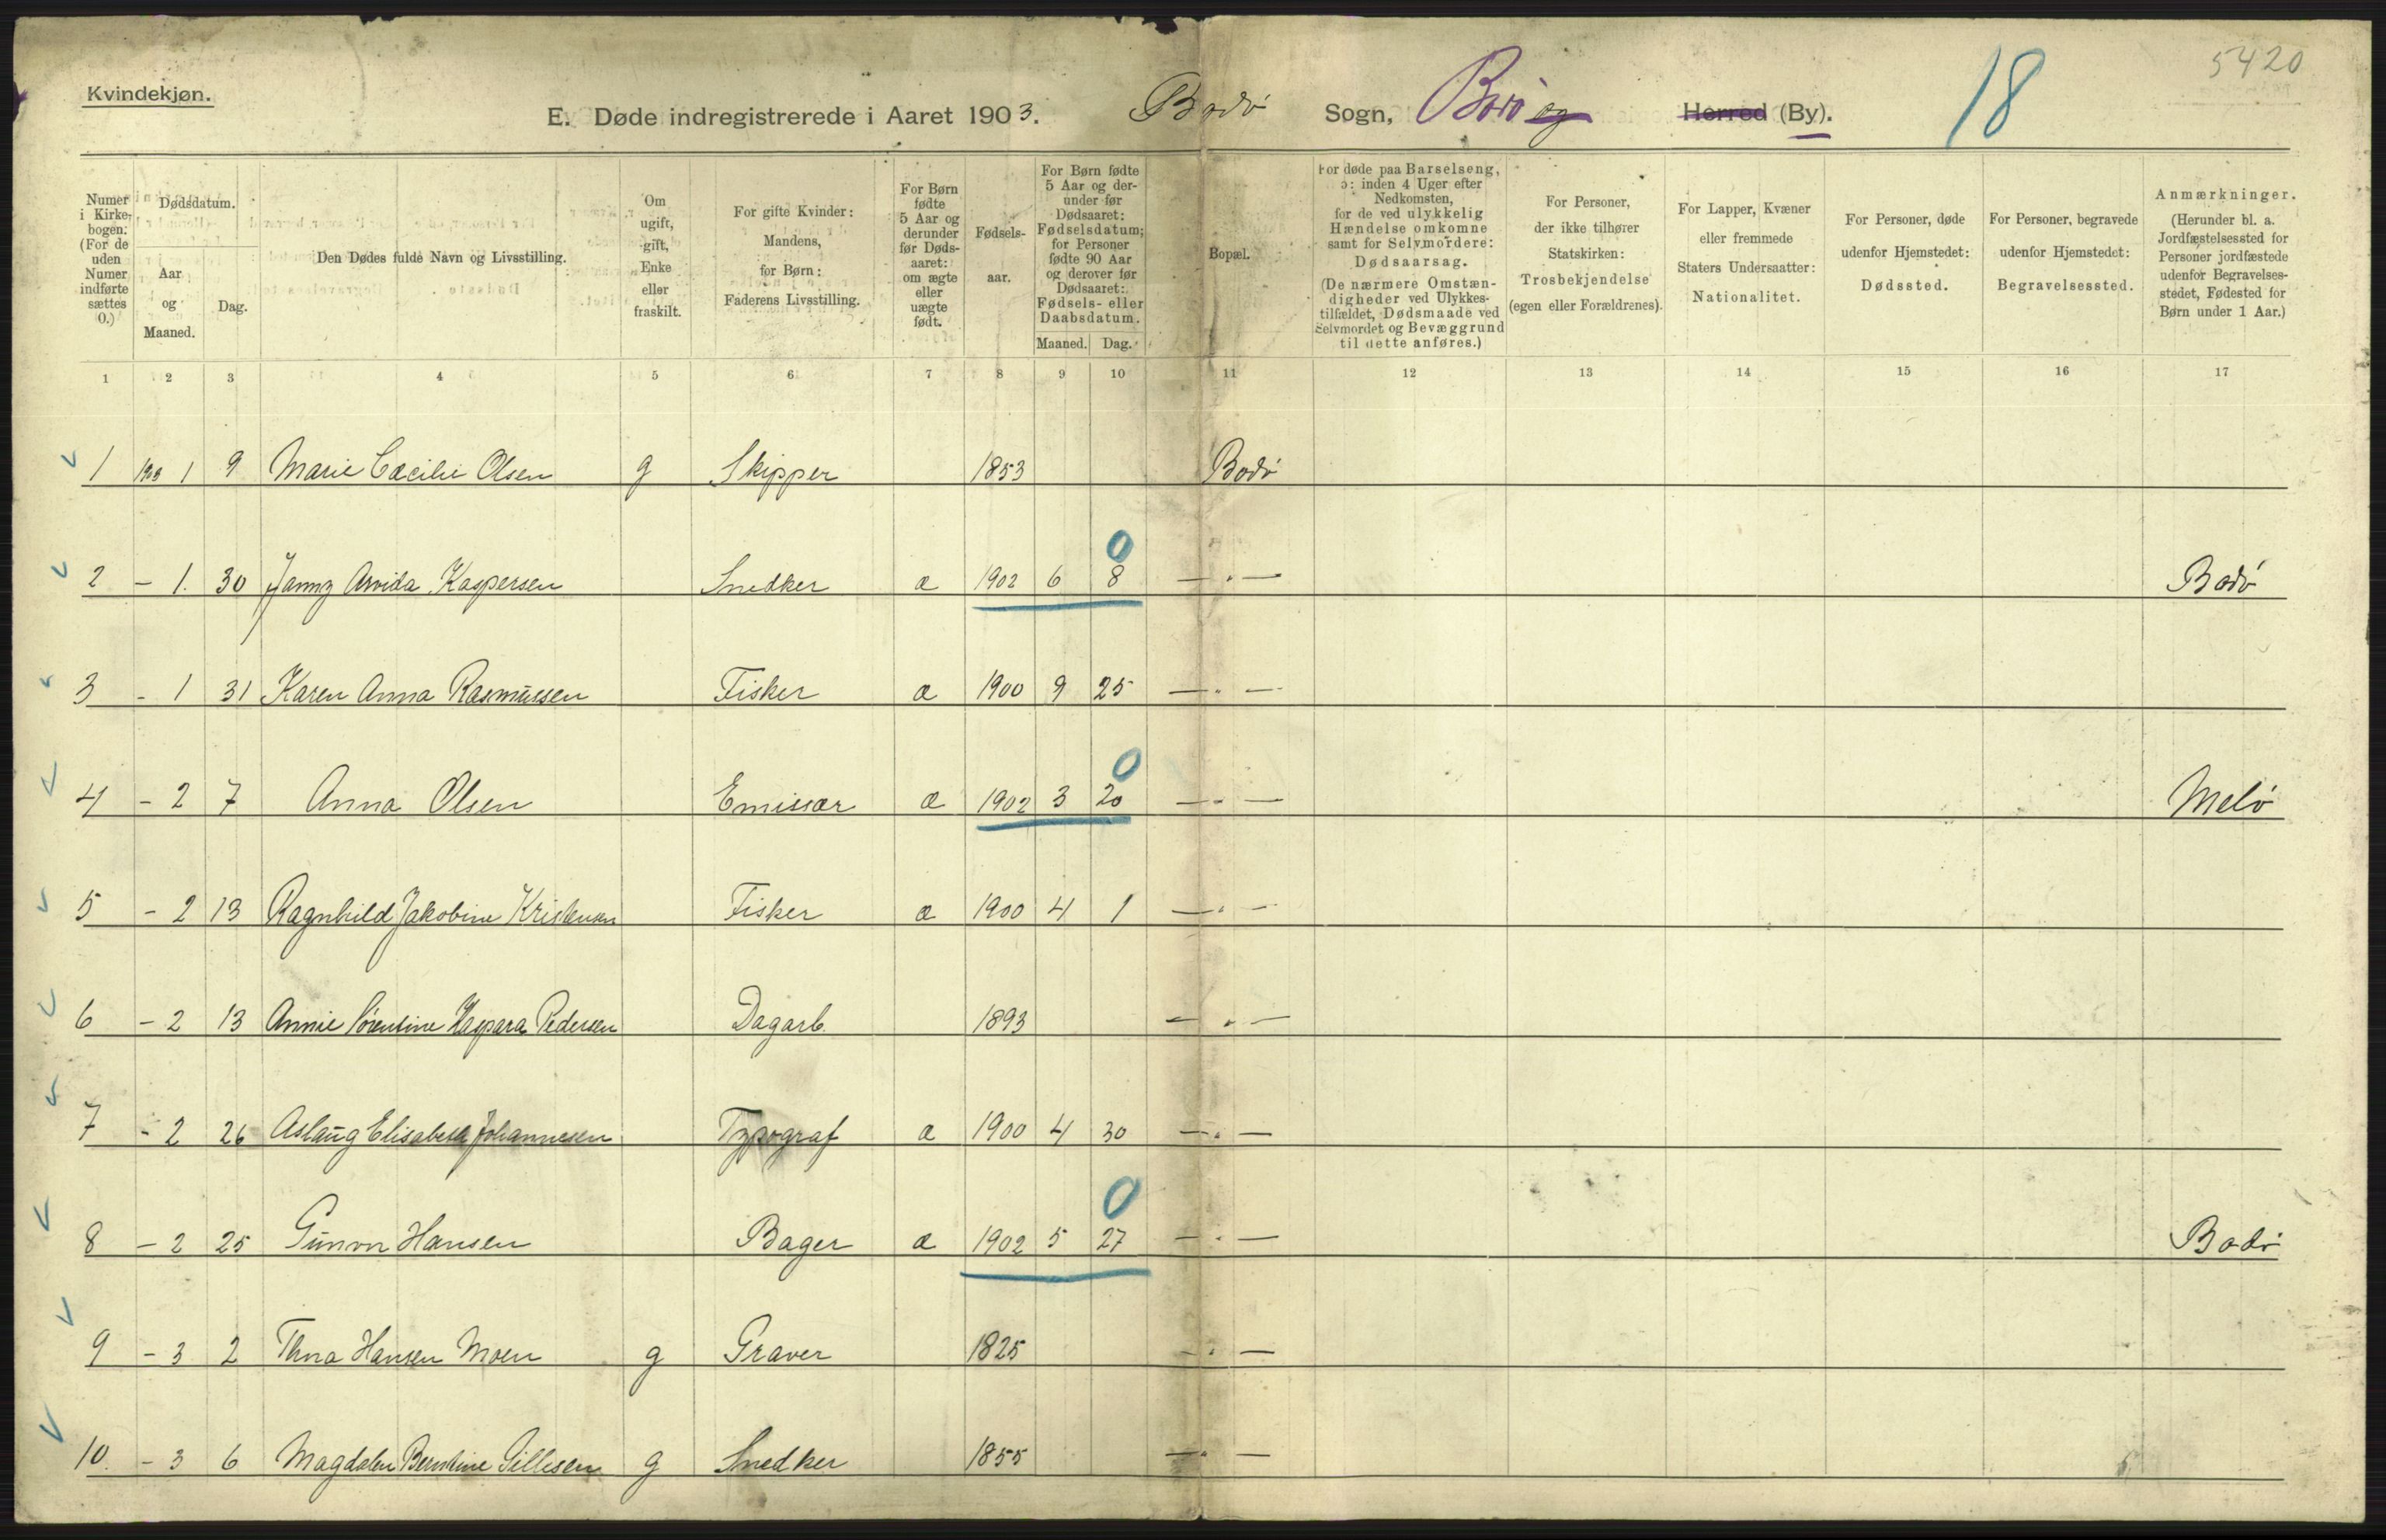 5420
Kvindekjøn.
E. Døde indregistrerede i Aaret 1903. Bodø Sogn, Bodø og Herred (By). 18
Numer i Kirkebogen: (For de uden Numer indførte sættes 0.)
Dødsdatum.
Aar og Maaned.
Dag.
Den Dødes fulde Navn og Livsstilling.
Om ugift, gift, Enke eller fraskilt.
For gifte Kvinder: Mandens, for Børn: Faderens Livsstilling.
For Børn fødte 5 Aar og derunder før Dødsaaret: om ægte eller uægte født.
Fødselsaar.
For Børn fødte 5 Aar og derunder før Dødsaaret: Fødselsdatum; for Personer fødte 90 Aar og derover før Dødsaaret: Fødsels- eller Daabsdatum.
Maaned. Dag.
Bopæl.
For døde paa Barselseng, ɔ: inden 4 Uger efter Nedkomsten, for de ved ulykkelig Hændelse omkomne samt for Selvmordere: Dødsaarsag. (De nærmere Omstændigheder ved Ulykkestilfældet, Dødsmaade ved Selvmordet og Bevæggrund til dette anføres.)
For Personer, der ikke tilhører Statskirken: Trosbekjendelse (egen eller Forældrenes).
For Lapper, Kvæner eller fremmede Staters Undersaatter: Nationalitet.
For Personer, døde udenfor Hjemstedet: Dødssted.
For Personer, begravede udenfor Hjemstedet: Begravelsessted.
Anmærkninger. (Herunder bl. a. Jordfæstelsessted for Personer jordfæstede udenfor Begravelsesstedet, Fødested for Børn under 1 Aar.)
1 2 3 4 5 6 7 8 9 10 11 12 13 14 15 16 17
1 1903 1 9 Marie Cæcilie Olsen g Skipper 1853 Bodø
0
2 - 1. 30 Janny Arvida Kaspersen Snedker æ 1902 6 8 — " — Bodø
3 - 1 31 Karen Anna Rasmussen Fisker æ 1900 9 25 — " —
0
4 - 2 7 Anna Olsen Emissær æ 1902 3 20 — " — Melø
5 - 2 13 Ragnhild Jakobine Kristensen Fisker æ 1900 4 1 — " —
6 - 2 13 Annie Sørentine Kaspara Pedersen Dagarb. 1893 — " —
7 - 2 26 Aslaug Elisabeth Johannesen Typograf æ 1900 4 30 — " —
0
8 - 2 25 Gunvor Hansen Bager æ 1902 5 27 — " — Bodø
9 - 3 2 Hansen Moen g Graver 1825 — " —
10. - 3 6 Magdalene Berntine Gillesen g Snedker 1855 — " —